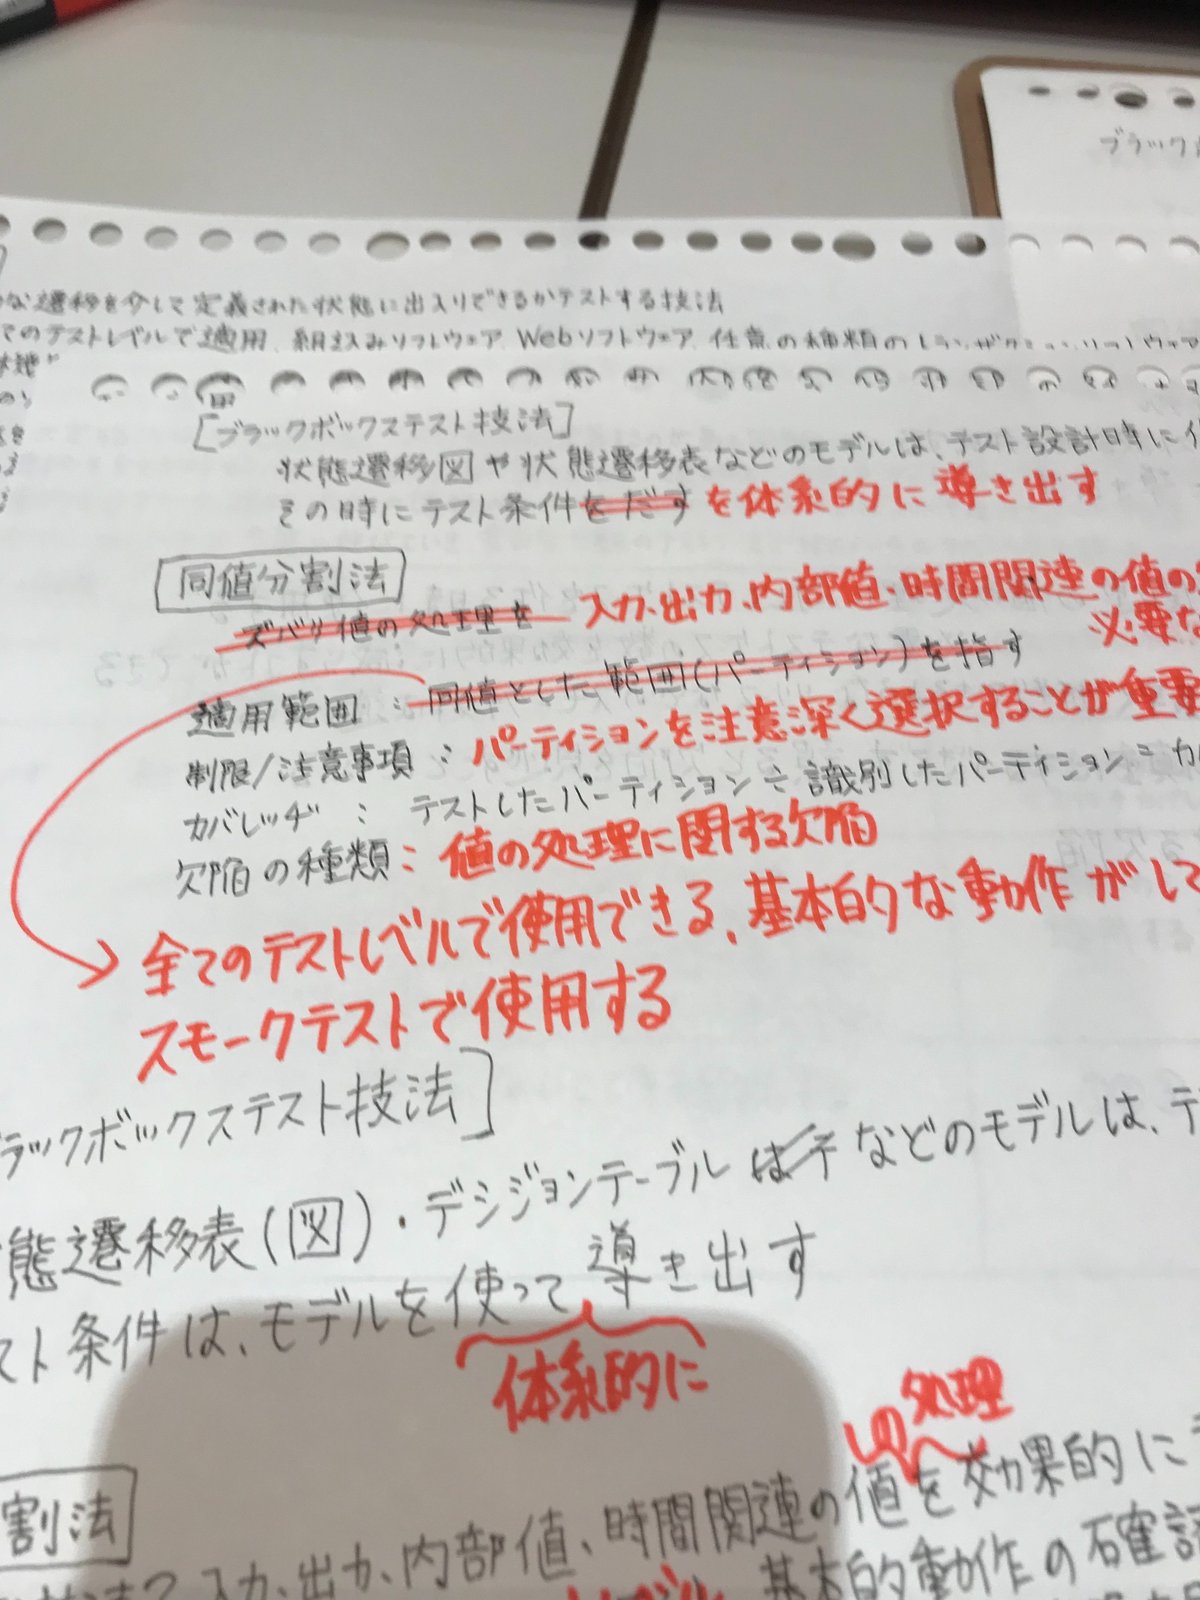 ブラック
な遷移を介して定義された状態に出入りできるかテストする技法
てのテストレベルで適用、組込みソフトウェア、Webソフトウェア、任意の種類の
[ブラックボックステスト技法]
状態遷移図や状態遷移表などのモデルは、テスト設計時に
その時にテスト条件をだす を体系的に導き出す
同値分割法
ズバリ値の処理を 入力、出力、内部値・時間関連の値の
必要な
適用範囲：同値とした範囲(パーティション)を指す
制限/注意事項：パーティションを注意深く選択することが重要
カバレッヂ：テストしたパーティション÷識別したパーティション
欠陥の種類：値の処理に関する欠陥
全てのテストレベルで使用できる、基本的な動作がして
スモークテストで使用する
ラックボックステスト技法]
態遷移表(図)・デシジョンテーブルは などのモデルは、テ
スト条件は、モデルを使って導き出す
体系的に
の処理
割法
入力、出力、内部値、時間関連の値を効果的に
基本的動作の確認